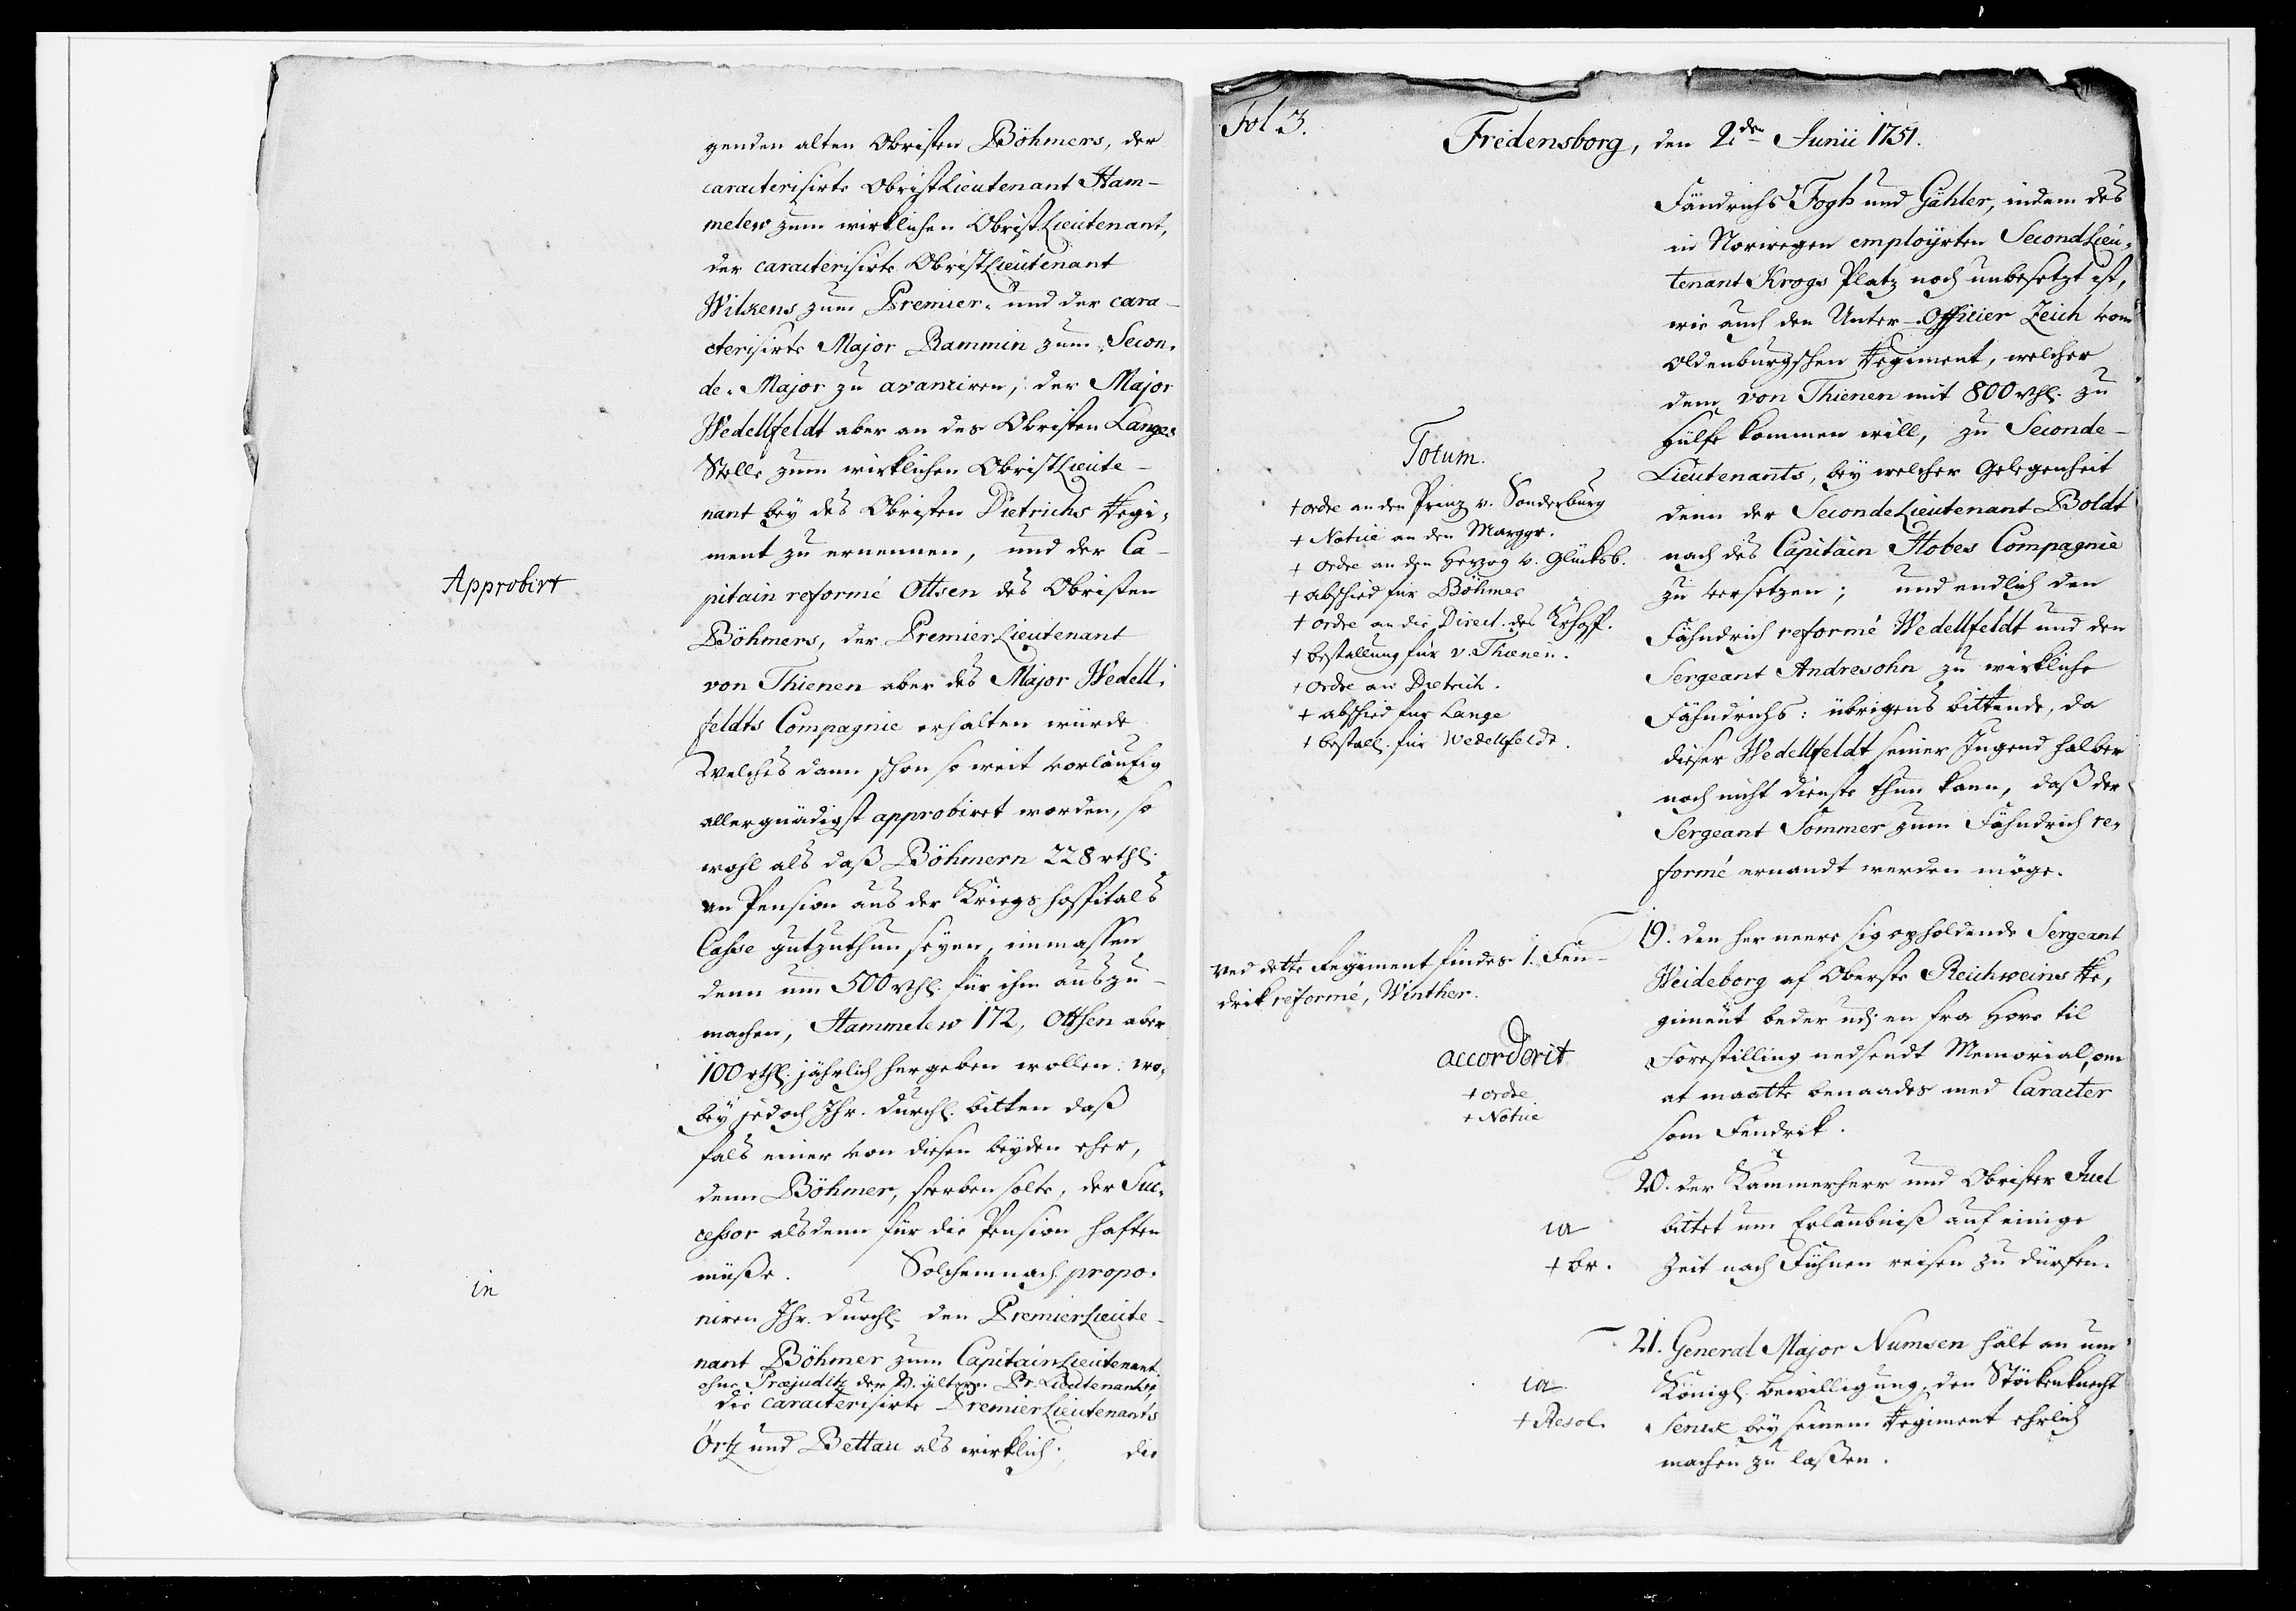 genden alten Obristen Böhmers, der
caracterisirte ObristLieutenant Ham-
melew zum wirklichen ObristLieutenant,
der caracterisirte ObristLieutenant
Wilkens zum Premier- und der cara-
cterisirte Major Rammin zum Secon-
de-Major zu avanciren; der Major
Wedellfeldt aber an des Obristen Langes
Stelle zum wirklichen ObristLieute-
nant bey des Obristen Dietrichs Regi-
ment zu ernennen, und der Ca-
Approbirt
pitain reformé Ottsen des Obristen
Böhmers, der PremierLieutenant
von Thienen aber des Major Wedell-
feldts Compagnie erhalten würde
Welches dann schon so weit vorläufig
allergnädigst approbiret worden, so
wohl als daß Böhmern 228 rthl.
an Pension aus der Kriegshospitals
Casse gutzuthun seyen, immassen
denn um 500 rthl. für ihn auszu-
machen, Hammelew 172, Ottsen aber
100 rthl. jährlich hergeben wollen: wo-
bey jedoch Ihr. Durchl. bitten daß
fals einer von diesen beyden eher,
denn Böhmer, sterben solte, der Suc-
cessor alsdenn für die Pension haften
müße. Solchemnach propo-
in
niren Ihr. Durchl. den PremierLieute-
nant Böhmer zum CapitainLieutenant
ohne Præjuditz der 2. ältern Pr. Lieutenants,
die caracterisirte PremierLieutenants
Örtz und Bettau als wirklich; die
Fol 3.
Fredensborg, den 2den Junii 1751.
Fändrichs Fogh und Gähler, indem des
in Norwegen employrten SecondLieu-
tenant Krogs Platz noch unbesetzt ist,
wie auch den Unter-Officier Zeich vom
Oldenburgschen Regiment, welcher
dem von Thienen mit 800 rthl. zu
Hülfe kommen will, zu Seconde-
Lieutenants, bey welcher Gelegenheit
denn der SecondeLieutenant Boldt
nach des Capitain Hobes Compagnie
zu versetzen; und endlich den
Fähndrich reformé Wedellfeldt und den
Sergeant Andresohn zu wirkliche
Fähndrichs: übrigens bittende, da
dieser Wedellfeldt seiner Jugend halber
noch nicht Dienste thun kann, daß der
Sergeant Sommer zum Fähndrich re-
formé ernandt werden möge.
Totum.
+ ordre an den Prinz v. Sonderburg
+ Notice an den Marggr.
+ ordre an den Herzog v. Glücksb.
+ abschied für Böhmer
+ ordre an die Direct. des Krhosp.
+ bestallung für v. Thienen.
+ Ordre an Dietrich.
+ abschied für Lange
+ bestall. für Wedellfeldt.
19. den her neere sig opholdende Sergeant
Weideborg af Oberste Reichweins Re-
giment beder udi en fra Hove til
Forestilling nedsendt Memorial, om
at maatte benaades med Caracter
som Fendrik.
Ved dette Regiment findes 1. Fen-
drik reformé, Winther.
accorderit
+ ordre
+ Notice
20. der Kammerherr und Obrister Juel
bittet um Erlaubniß auf einige
Zeit nach Fühnen reisen zu dürfen.
ia
+ br.
21. General Major Numsen hält an um
Königl. bewilligung, den Stöckenknecht
Senex bey seinem Regiment ehrlich
machen zu laßen.
ia
+ Resol.